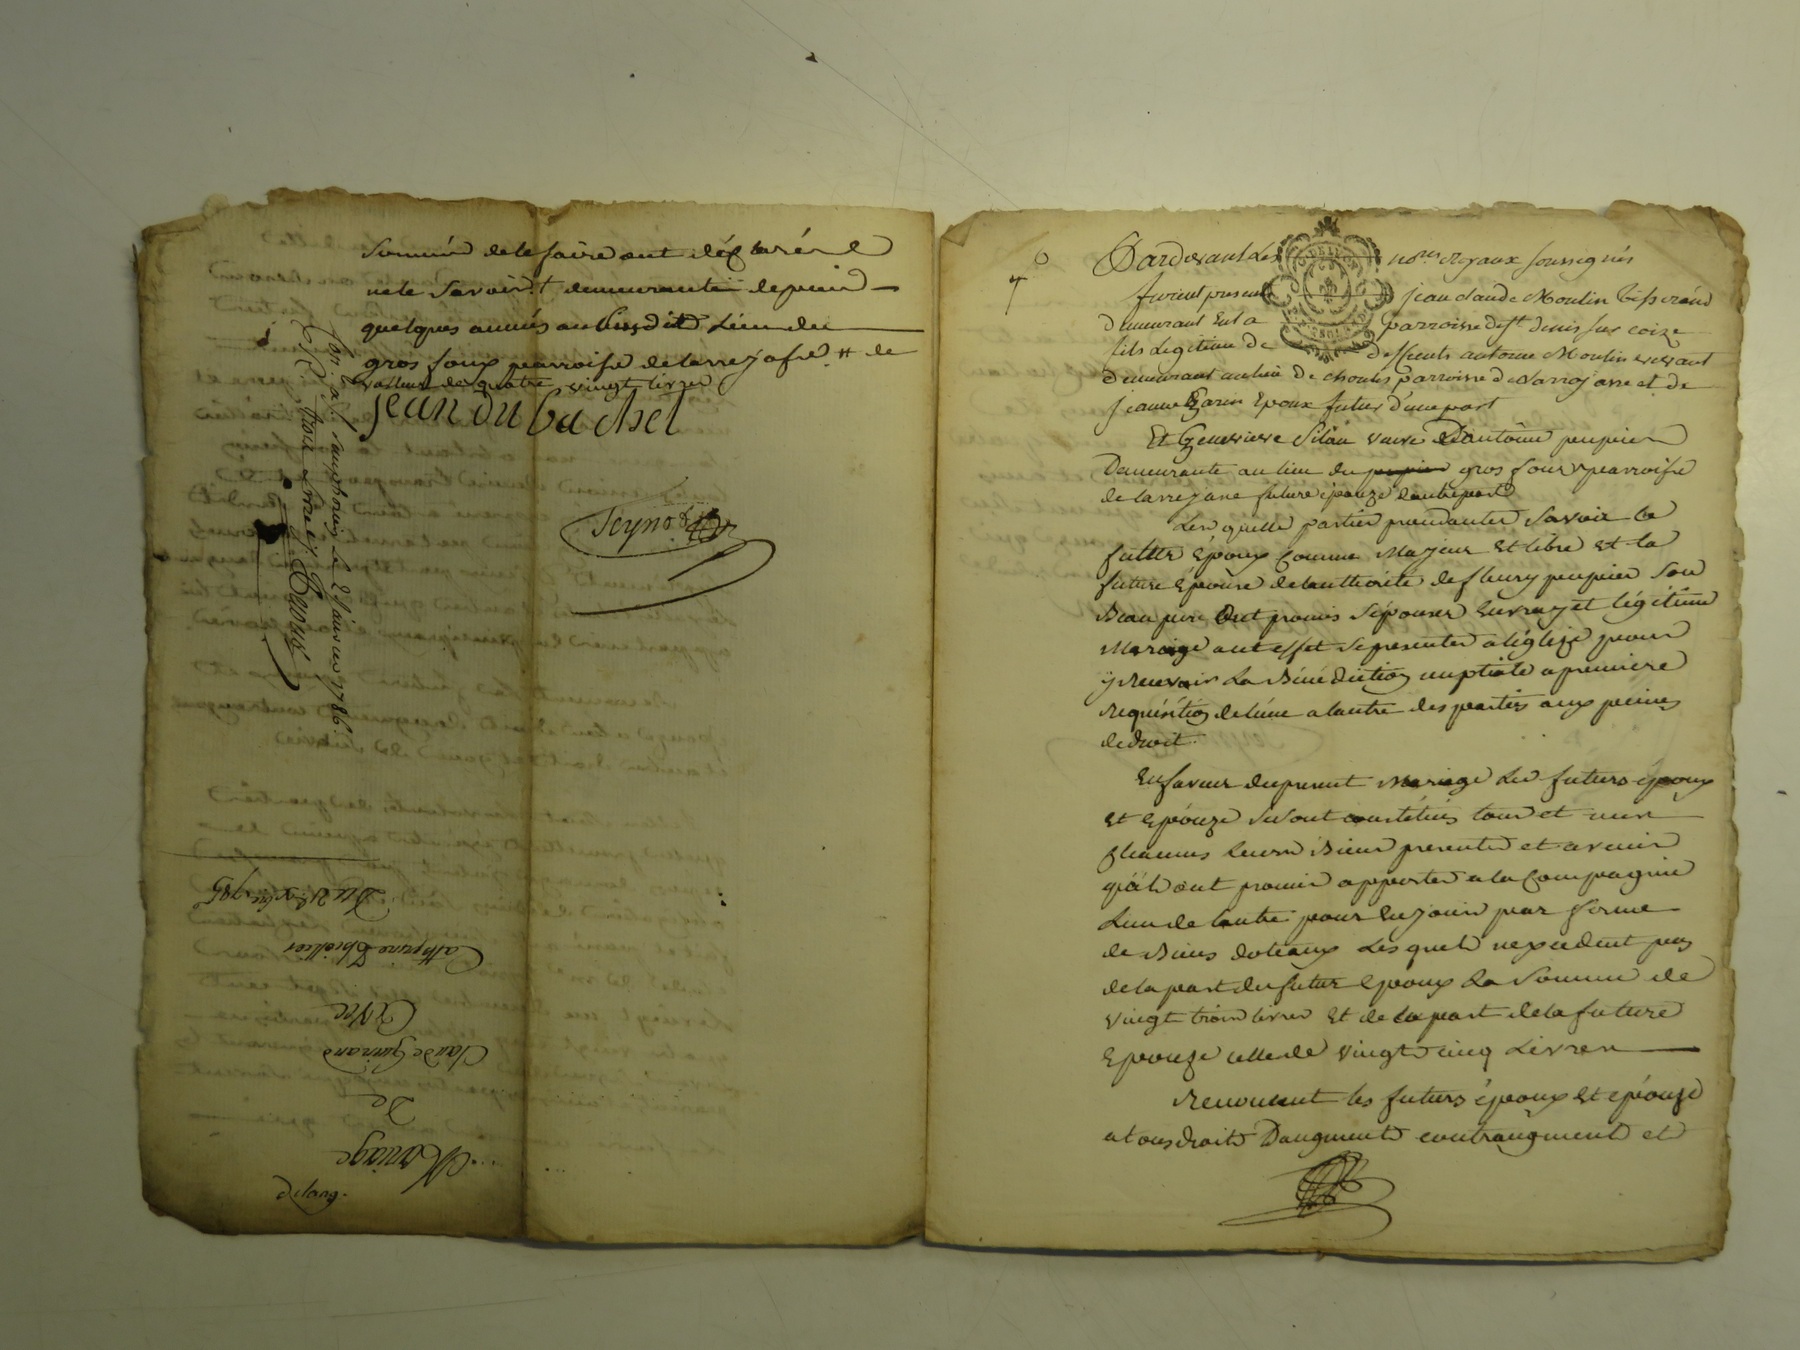 sommés de le faire ont déclaré
ne le savoir. † demeurante depuis
quelques années au susdit Lieu du
gros soux parroisse de larrejasse # de
valleur de quatre vingt livres
jean du bachel
Seyno
Con. à St. Simphorien Le 2 janvier 1786.
Du 21 Xbre 1785
Catherine Thiollier
avec
Claude Guinand
De
Mariage
Pardevant Les nores royaux soussignés
furent present jean claude Moulin Tisserand
demeurant En la parroisse de st. denis sur coize
fils Legitime de deffunts antoine Moulin vivant
demeurant au lieu De parroisse de Larrajasse et de
jeanne Garin Epoux futur d'une part
Et Genevieve veuve D'antoine peupier
Demeurante au lieu du gros soux parroisse
de larrejasse future épouze d'autre part
Lesquelle parties procedantes Savoir le
futur Epoux comme Majeur Et libre Et la
future Epouse de l'authorité de fleury peupier son
Beau pere Ont promis S'épouser En vray et légitime
Mariage a cet effet se presenter a l'églize pour
y recevoir La Bénédiction nuptiale a premiere
requisition de l'une a l'autre des parties aux peines
de droit.
En faveur du present Mariage Les futurs époux
Et Epouze se sont constitués tous et uns
chacuns Leurs Biens presents et avenir
qu'ils ont promis apporter a la Compagnie
L'un de l'autre pour En jouir par forme
de Biens doteaux Lesquels n'excedent pas
de la part du futur Epoux La Somme de
vingt trois livres Et de la part de la future
Epouze celle de vingt cinq Livres
Renoncent les futurs époux Et epouze
a tous droits D'augment contraugment et